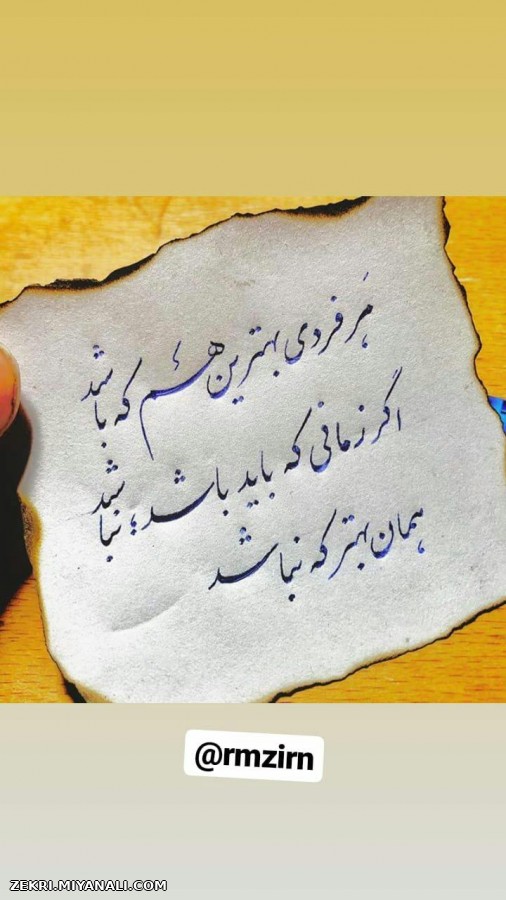 هَر فردی بهترین هم که باشد
اگر زمانی که باید باشد؛ نباشد
همان بهتر که نباشد
@rmzirn
ZEKRI.MIYANALI.COM